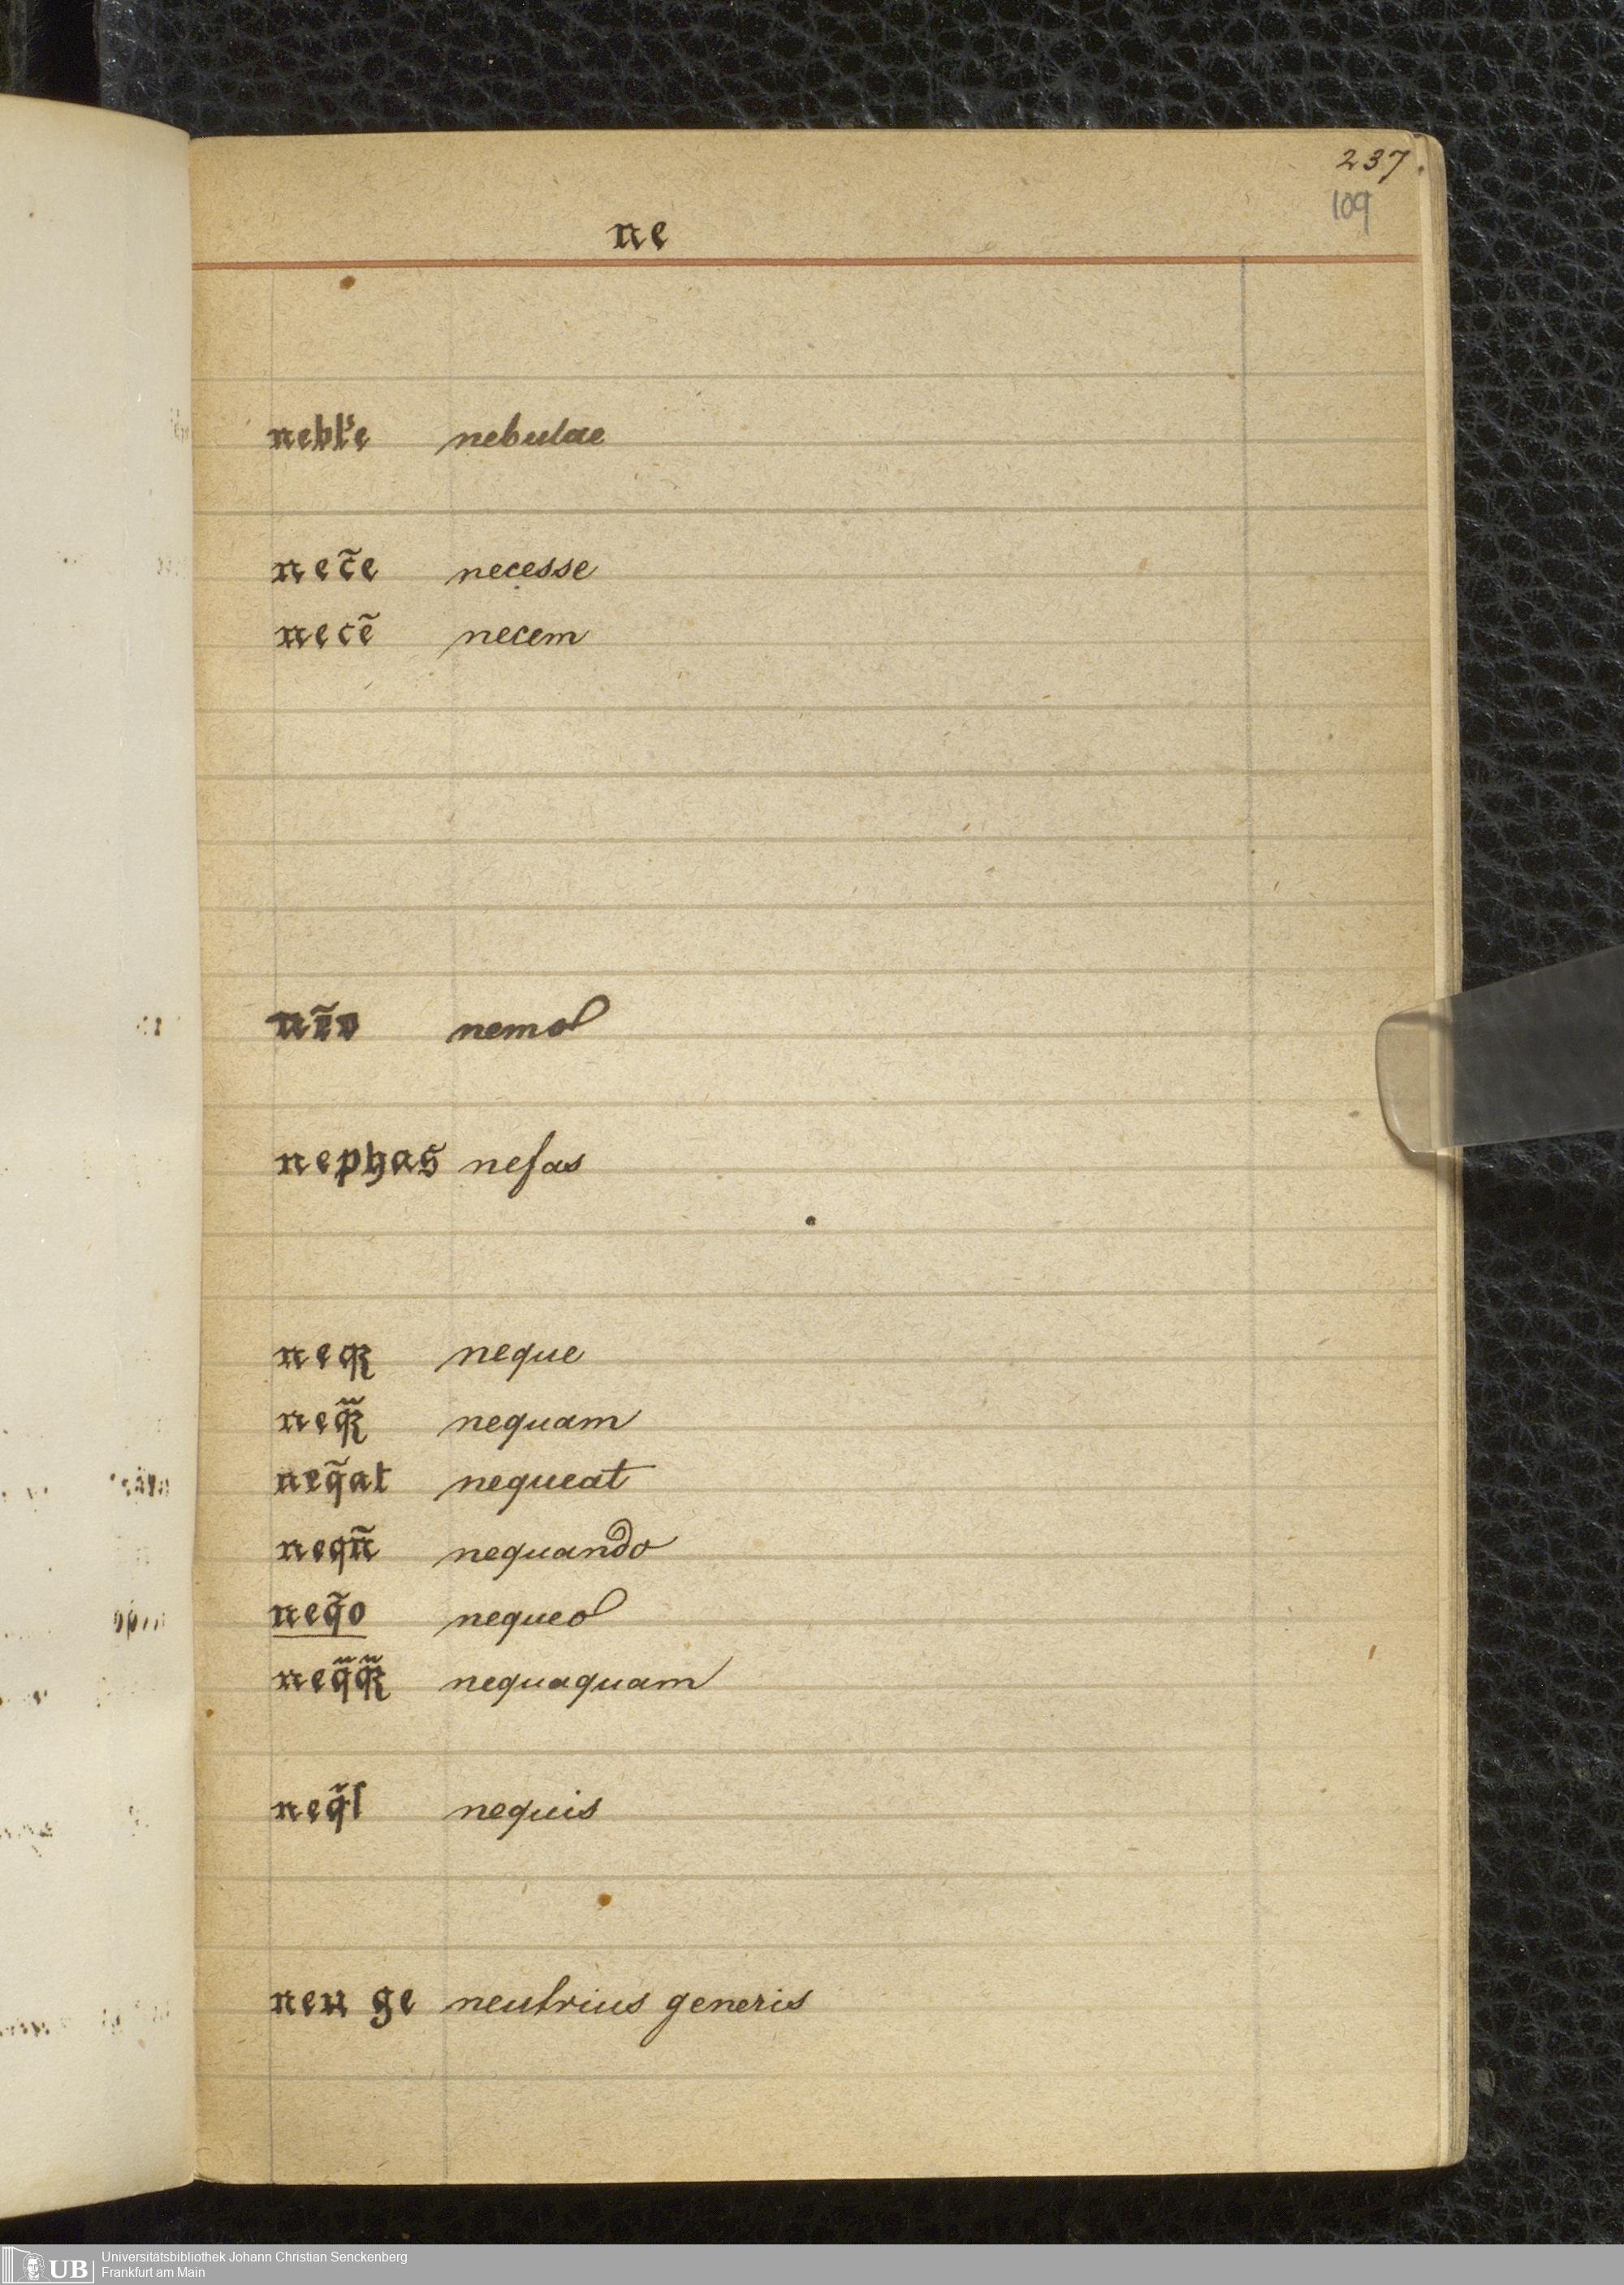 237.
109
ne
nebl'e nebulae
nec̃e necesse
necẽ necem
nẽo nemo
nephas nefas
neqꝫ neque
neq̃ꝫ nequam
neq̃at nequeat
neqñ nequando
neq̃o nequeo
neq̃q̃ꝫ nequaquam
neq̃ſ nequis
neu ge neutrius generis
UB Universitätsbibliothek Johann Christian Senckenberg
Frankfurt am Main